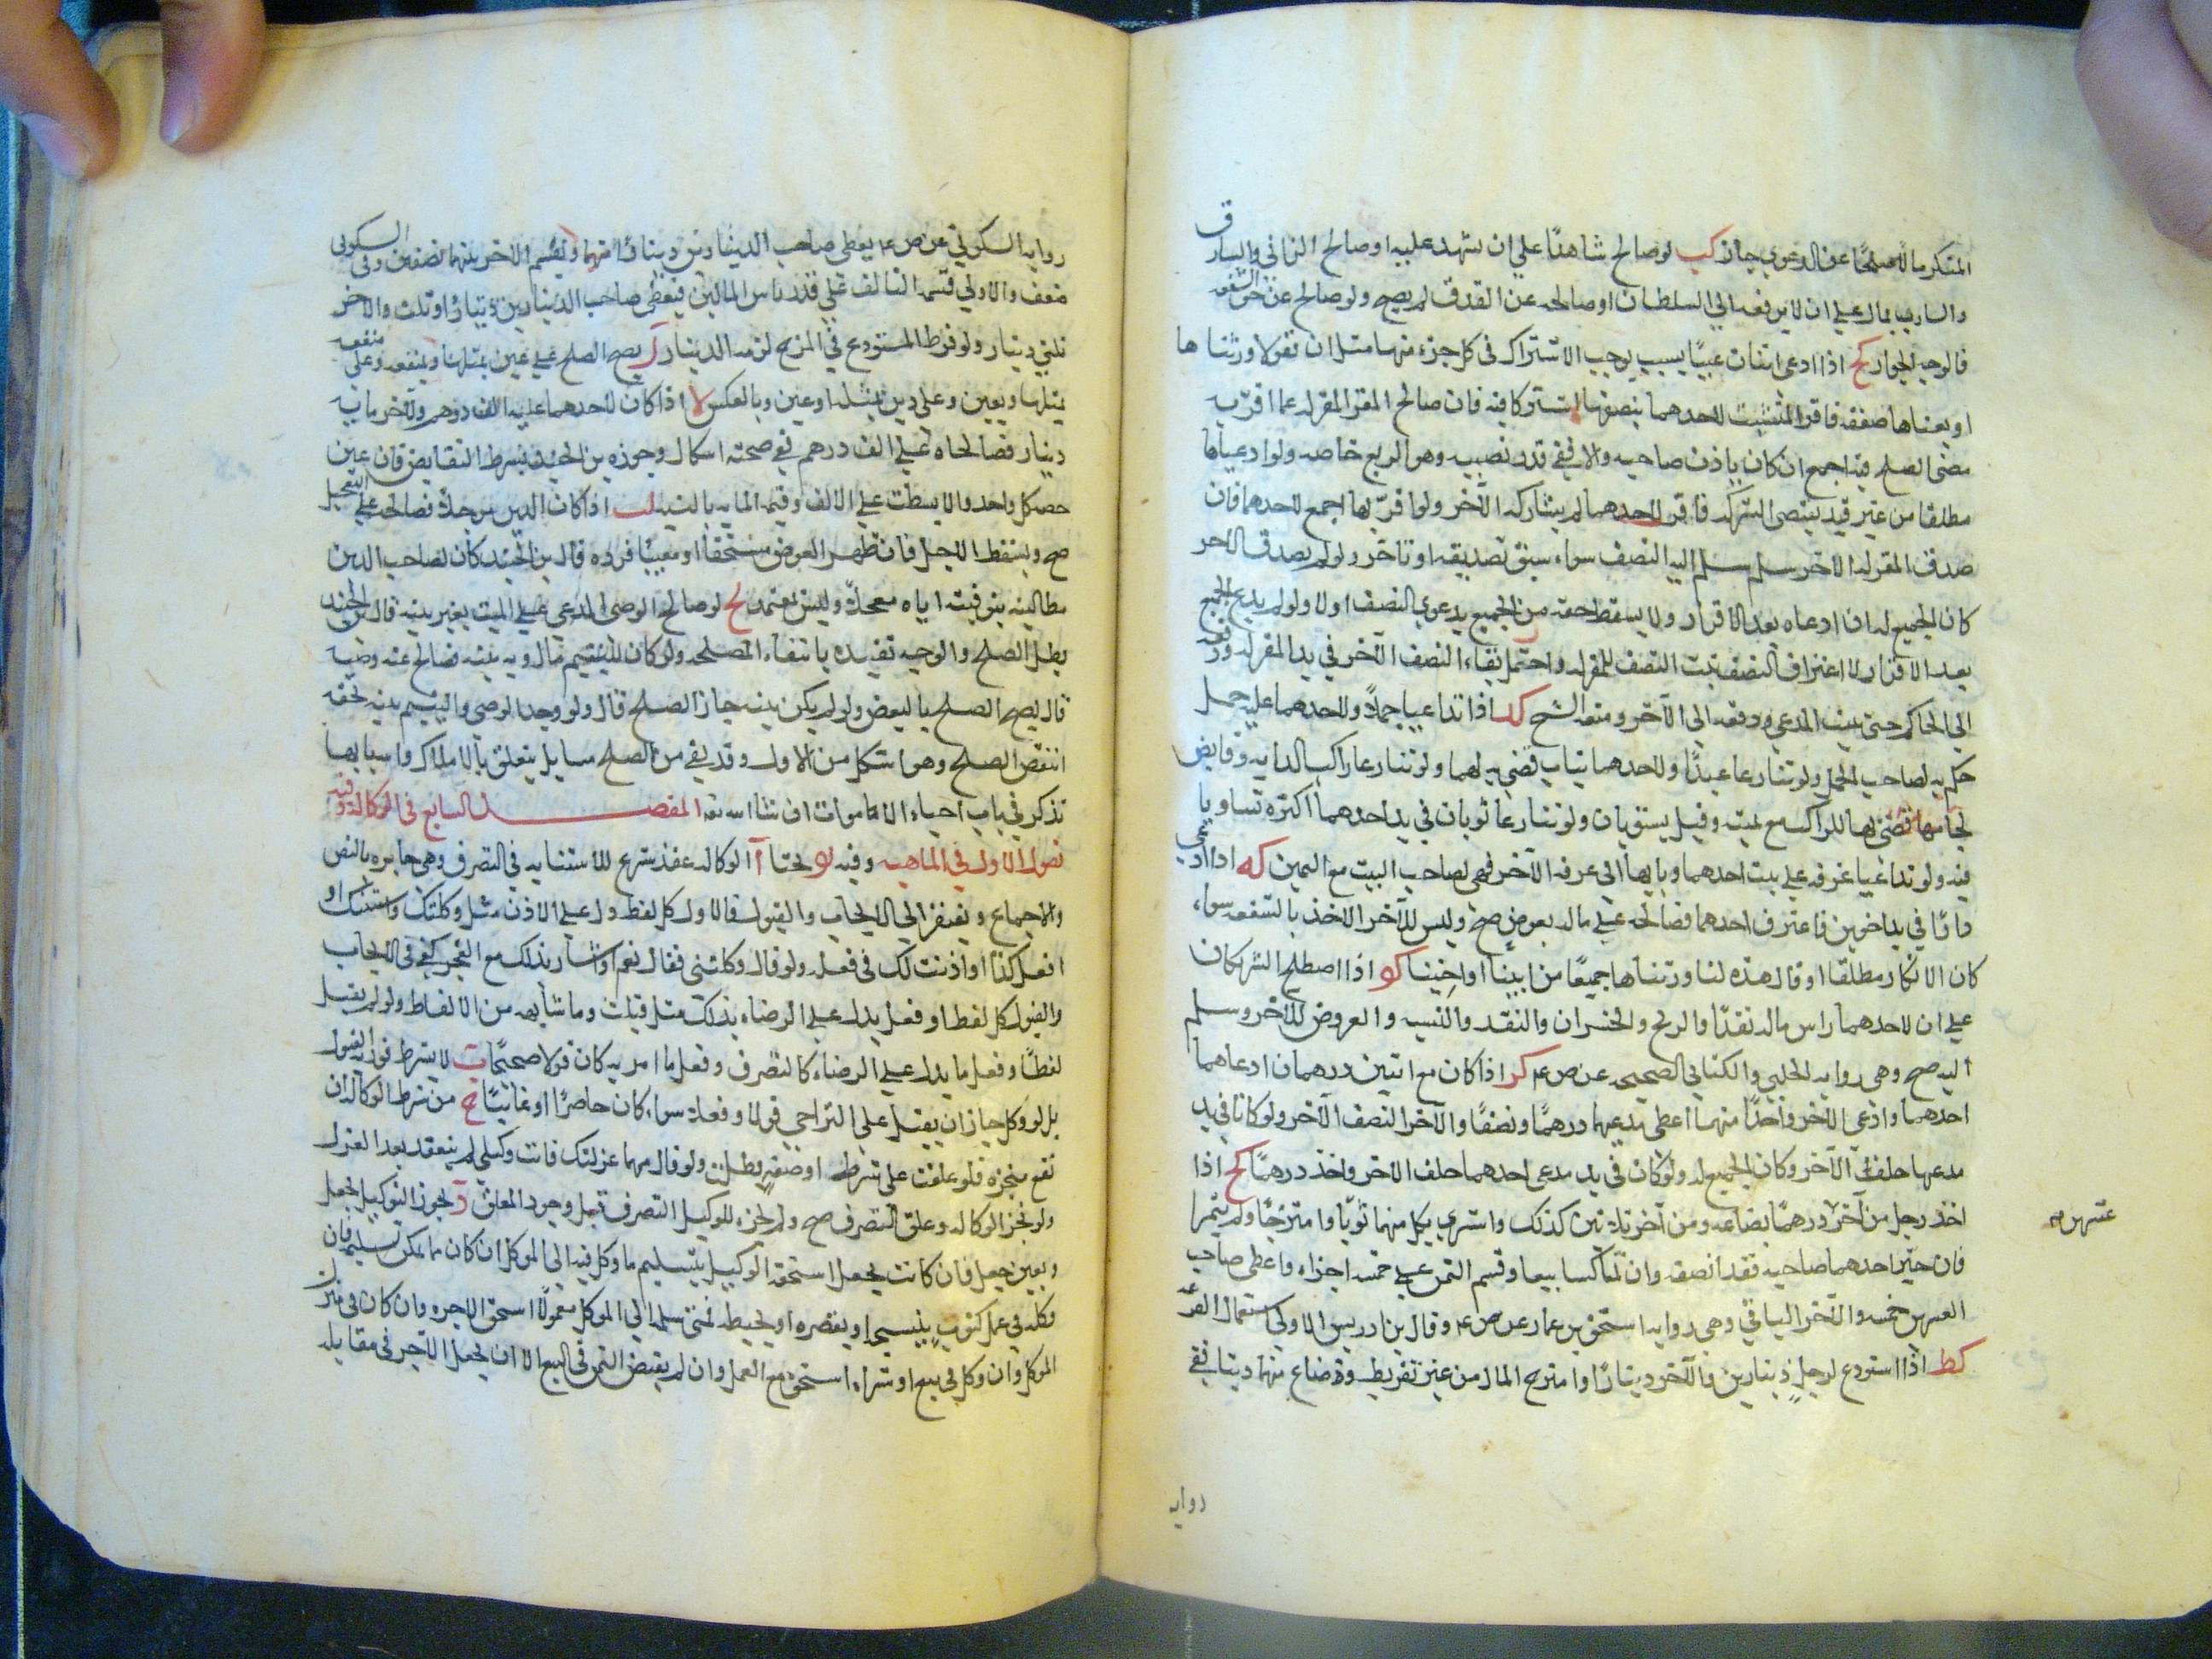 المنكر مالا صلحًا عن الدعوي جاز كب لو صالح شاهدًا علي ان يشهد عليه او صالح الزاني والسارق
والشارب بمال علي ان لا يرفعه الي السلطان او صالحه عن القذف لم يصح ولو صالح عن حق الشفعه
فالوجه الجواز كج اذا ادعي اثنان عينًا بسبب يوجب الاشتراك في كل جزء منهما مثل ان تقولا ورثناها
او بعناها صفقه فاقر المتشبث لاحدهما بنصفها اشتركا فيه فان صالح المقر المقر له عما اقر به
مضي الصلح فيه اجمع ان كان باذن صاحبه والا ففي قدر نصيبه وهو الربع خاصه ولو ادعياها
مطلقا من غير قيد يقتضي الشركه فاقر لاحدهما لم يشاركه الآخر ولو اقر بها اجمع لاحدهما فان
صدق المقر له الاخر سلم اليه النصف سواء سبق تصديقه او تاخر ولو لم يصدق الاخر
كان الجميع له ان ادعاه بعد الاقرار ولا يسقط حقه من الجميع بدعوي النصف اولا ولو لم يدع الجميع
بعد الاقرار لا اعتراف النصف ثبت النصف للمقر له واحتمل بقاء النصف الآخر في يد المقر له ورفعه
الي الحاكم حتي يثبت المدعي ودفعه الي الآخر ومنعه الشيخ كد اذا تداعيا جملًا ولاحدهما عليه حمل
حكم به لصاحب الحمل ولو تنازعا عبدًا ولاحدهما ثياب قضي به لهما ولو تنازعا راكب الدابه وقابض
لجامها قضي بها للراكب مع يمينه وقيل يستويان ولو تنازعا ثوبان في يد احدهما اكثره تساويا
فيه ولو تداعيا غرفه علي بيت احدهما وبابها الي غرفه الآخر فهي لصاحب البيت مع اليمين كه اذا ادعي
دارًا في يد اخوين فاعترف احدهما فصالحه علي مال بعوض صح وليس للآخر الاخذ بالشفعه سواء
كان الانكار مطلقا او قال هذه لنا ورثناها جميعًا من ابينا او اخينا كو اذا اصطلح الشريكان
علي ان لاحدهما راس ماله نقدًا والربح والخسران والنقد والنسيه والعروض للآخر وسلم
اليه صح وهي روايه الحلبي والكناني الصحيحه عن ص ع كز اذا كان مع اثنين درهمان ادعاهما
احدهما وادعي الاخر واحدًا منهما اعطي مدعيهما درهمًا ونصفًا والآخر النصف الآخر ولو كانا في يد
مدعيهما حلف للآخر وكان الجميع له ولو كان في يد مدعي احدهما حلف الآخر واخذ درهمًا كح اذا
اخذ رجل من آخر درهمًا بضاعه ومن آخر ثلاثين كذلك واشتري بكل منهما ثوبًا وامتزجا ولم يتميزا
عشرين صح
فان خير احدهما صاحبه فقد انصفه وان تعاكسا بيعا وقسم الثمن علي خمسه اجزاء واعطي صاحب
العشرين خمسه والآخر الباقي وهي روايه اسحق بن عمار عن ص ع وقال بن ادريس الاولي استعمال القرعه
كط اذا استودع لرجل دينارين والآخر دينارًا وامتزج المال من غير تفريط وضاع منهما دينار ففي
روايه
روايه السكوني عن ص ع يعطي صاحب الدينارين دينارًا منهما ويقسم الاخر بينهما نصفين وفي السكوني
ضعف والاولي قسمه التالف علي قدر راس المالين فيعطي صاحب الدينارين دينارًا وثلث والاخر
ثلثي دينار ولو فرط المستودع في المزج لزمه الدينار ل يصح الصلح علي عين بمثلها وبمنفعه وعلي منفعه
بمثلها وبعين وعلي دين بمثله او عين وبالعكس لا اذا كان لاحدهما عليه الف درهم وللآخر مايه
دينار فصالحاه علي الف درهم ففي صحته اشكال وجوزه بن الجنيد بشرط التقابض فان عين
حصه كل واحد والا بسطت علي الالف وقيمه المايه بالنسبه لب اذا كان الدين مؤجلًا فصالحه علي التعجيل
صح ويسقط الاجل فان ظهر العوض مستحقًا او معيبًا فرده قال بن الجنيد كان لصاحب الدين
مطالبته بتوفيته اياه معجلًا وليس بمعتمد لج لو صالح الوصي المدعي علي الميت بغير بينه قال بن الجنيد
بطل الصلح والوجه تقييده بانتفاء المصلحه ولو كان لليتيم مال وبه بينه فصالح عنه وصيه
قال يصح الصلح بالبعض ولو لم يكن بينه جاز الصلح قال ولو وجد الوصي واليتيم بينه بحقه
انتقض الصلح وهو اشكل من الاول وقد بقي من الصلح مسايل يتعلق بالاملاك واسبابها
تذكر في باب احياء الاموات ان شا الله تعه المقصد السابع في الوكاله وفيه
فصول الاول في الماهيه وفيه لو بحثا آ الوكاله عقد شرع للاستنابه في التصرف وهي جايزه بالنص
والاجماع ويفتقر الي الايجاب والقبول فالاول كل لفظ دل علي الاذن مثل وكلتك واستنبتك او
افعل كذا او اذنت لك في فعله ولو قال وكلتني فقال نعم او اشار بذلك مع العجز كفي في الايجاب
والقبول كل لفظ او فعل يدل علي الرضاء بذلك مثل قبلت وما شابهه من الالفاظ ولو لم يقبل
لفظًا وفعل ما يدل علي الرضاء كالتصرف وفعل ما امر به كان قبولا صحيحًا ب لا يشترط فوريه القبول
بل لو وكل جاز ان يقبل علي التراخي قولا وفعلا سواء كان حاضرًا او غايبًا ج من شرط الوكاله ان
تقع منجزه فلو علقت علي شرط او صفه بطلت ولو قال مهما عزلتك فانت وكيلي لم ينعقد بعد العزل
ولو نجز الوكاله وعلق التصرف صح ولم يجز للوكيل التصرف قبل وجود المعلق د يجوز التوكيل بجعل
وبغير جعل فان كانت بجعل استحقه الوكيل بتسليم ما وكل فيه الي الموكل ان كان مما يمكن تسليمه فان
وكله في عمل كثوب ينسجه او يقصره او يخيطه فمتي سلمه الي الموكل معمولًا استحق الاجره وان كان في منزل
الموكل وان وكل في بيع او شراء استحق مع العمل وان لم يقبض الثمن في البيع الا ان يجعل الاجر في مقابله